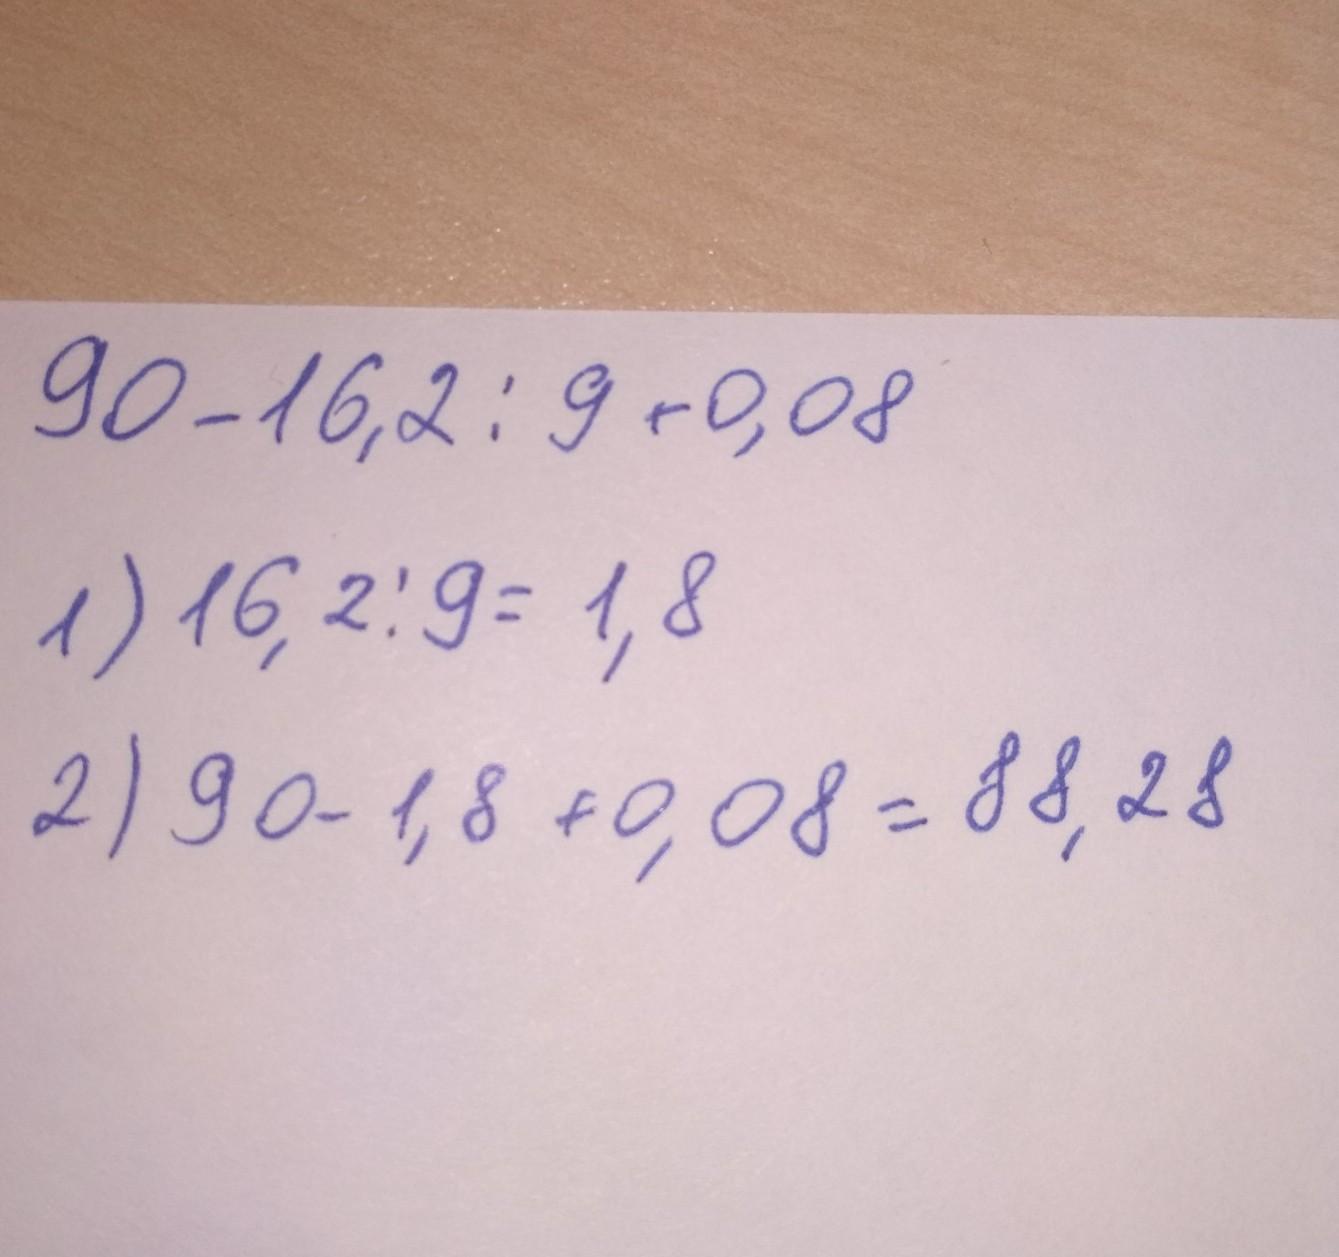 90-16,2:9+0,08
1) 16,2:9= 1,8
2) 90-1,8+0,08=88,28